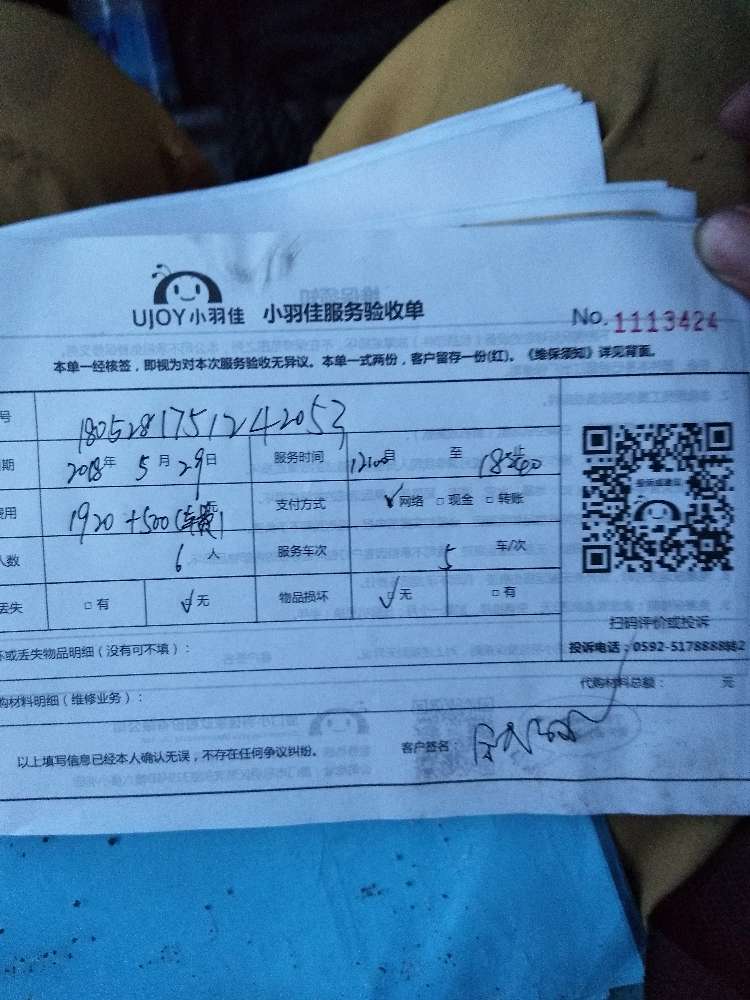 UJOY小羽佳 小羽佳服务验收单 No. 1113424
本单一经核签，即视为对本次服务验收无异议。本单一式两份，客户留存一份(红)。《维保须知》详见背面。
号 1805281751242053
期 2018年 5月 29日 服务时间 12:00 至 止
费用 1920+500(车费) 支付方式 ✓网络 □现金 □转账
人数 6人 服务车次 5 车/次
丢失 □有 ✓无 物品损坏 ✓无 □有
扫码评价或投诉
坏或丢失物品明细（没有可不填）：
投诉电话：0592-5178888转2
购材料明细（维修业务）：
代购材料总额： 元
以上填写信息已经本人确认无误，不存在任何争议纠纷。 客户签名：